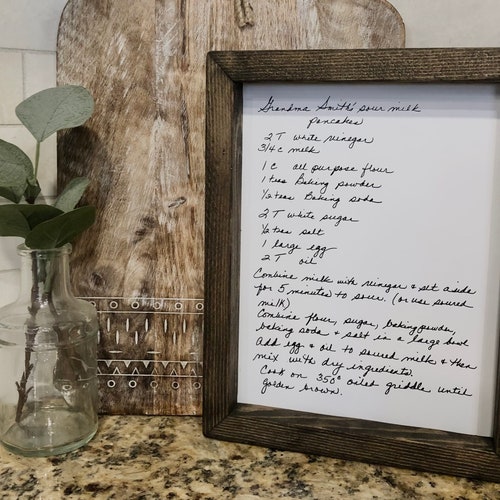 Grandma Smith's sour milk
pancakes
2 T white vinegar
3/4 c milk
1 c all purpose flour
1 teas Baking powder
1/2 teas Baking soda
2 T white sugar
1/2 teas salt
1 large egg
2 T oil
Combine milk with vinegar & set aside
for 5 minutes to sour. (or use soured
milk)
Combine flour, sugar, baking powder,
baking soda & salt in a large bowl
Add egg & oil to soured milk & then
mix with dry ingredients.
Cook on 350° oiled griddle until
golden brown.